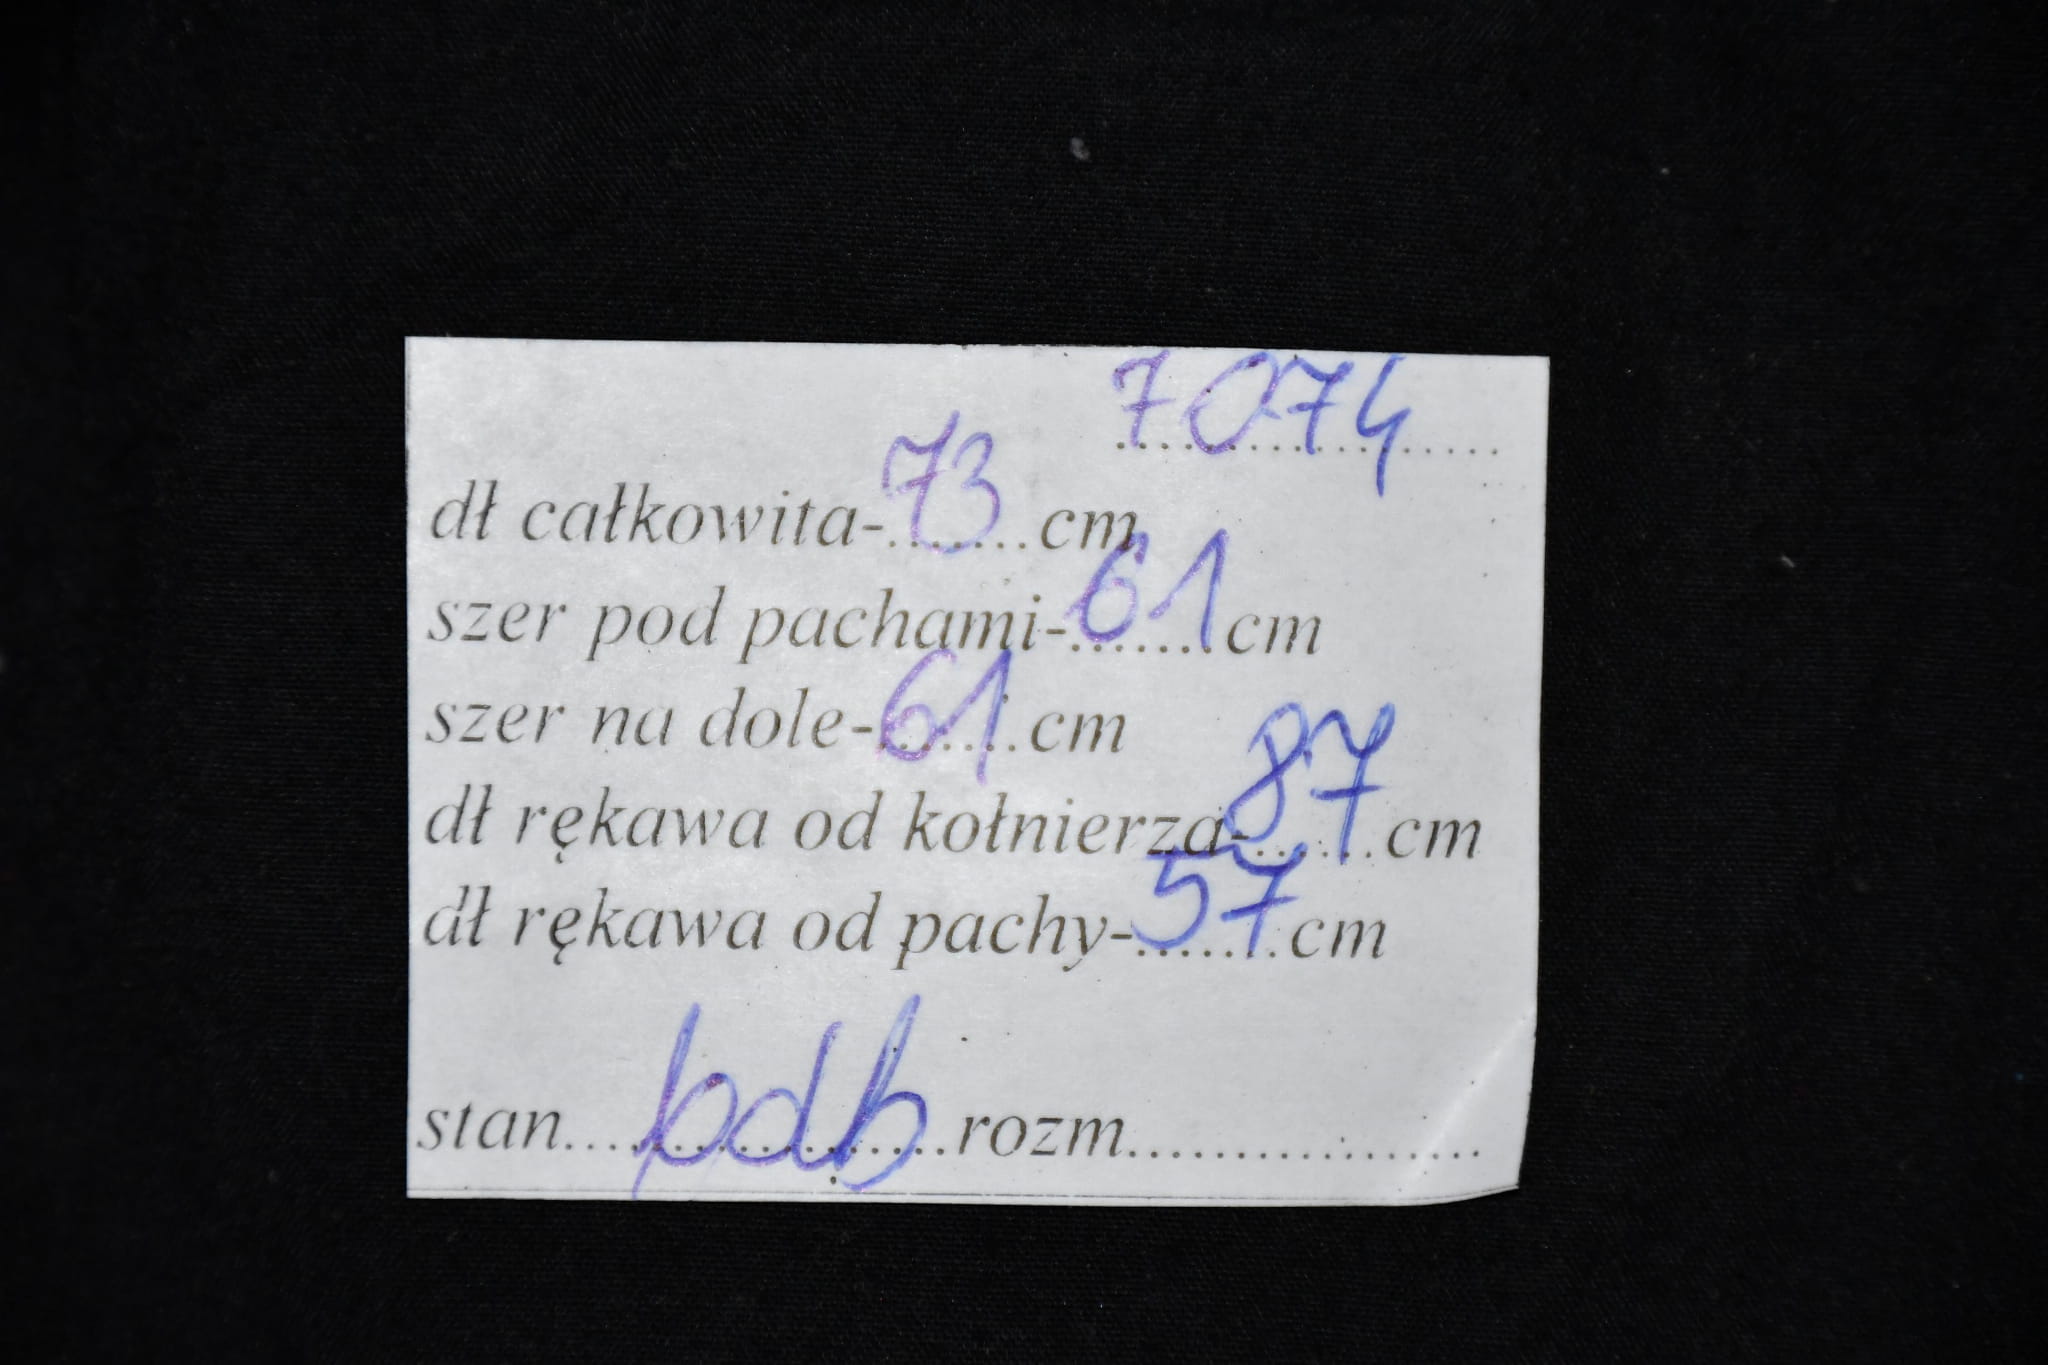 7074
dł całkowita-73cm
szer pod pachami-61cm
szer na dole-61cm
dł rękawa od kołnierza-87cm
dł rękawa od pachy-57cm
stan....bdb....rozm................